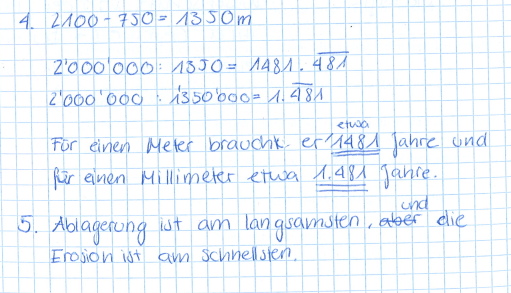 4. 2100 - 750 = 1350 m
2'000'000 : 1350 = 1481.481
2'000'000 : 1'350'000 = 1.481
etwa
Für einen Meter braucht er 1481 Jahre und
für einen Millimeter etwa 1.481 Jahre.
und
5. Ablagerung ist am langsamsten, aber die
Erosion ist am schnellsten.